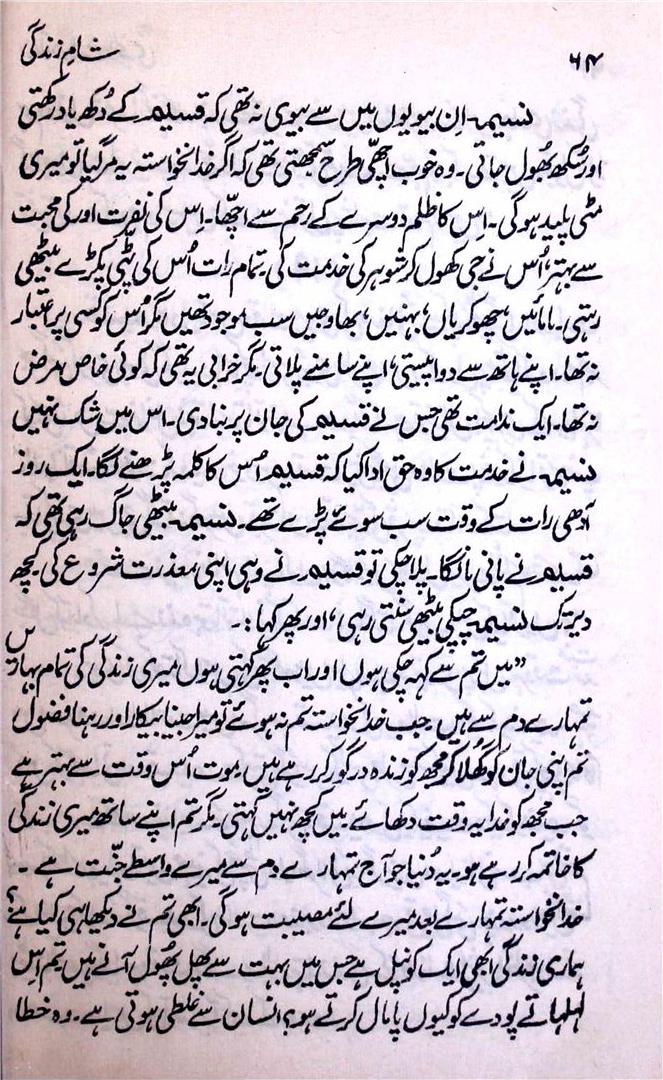 ۶۴ شامِ زندگی
نسیمہ۔ اِن بیویوں میں سے بیوی نہ تھی کہ قسیم کے دُکھ یاد رکھتی
اور سُکھ بھُول جاتی۔ وہ خوب اچھّی طرح سمجھتی تھی کہ اگر خدانخواستہ یہ مرگیا تو میری
مٹی پلید ہوگی۔ اِس کا ظلم دوسرے کے رحم سے اچھّا۔ اِس کی نفرت اور کی محبت
سے بہتر، اُس نے جی کھول کر شوہر کی خدمت کی۔ تمام رات اُس کی پٹی پکڑے بیٹھی
رہتی۔ مامائیں، چھوکریاں، بہنیں، بھاوجیں سب موجود تھیں مگر اُس کو کسی پر اعتبار
نہ تھا۔ اپنے ہاتھ سے دوا پیستی، اپنے سامنے پلاتی۔ مگر خرابی یہ تھی کہ کوئی خاص مرض
نہ تھا۔ ایک ندامت تھی جس نے قسیم کی جان پر بنا دی۔ اس میں شک نہیں
نسیمہ نے خدمت کا وہ حق ادا کیا کہ قسیم اُس کا کلمہ پڑھنے لگا۔ ایک روز
آدھی رات کے وقت سب سوئے پڑے تھے۔ نسیمہ بیٹھی جاگ رہی تھی کہ
قسیم نے پانی مانگا۔ پلا چکی تو قسیم نے وہی اپنی معذرت شروع کی۔ کچھ
دیر تک نسیمہ چپکی بیٹھی سنتی رہی، اور پھر کہا:۔
”میں تم سے کہہ چکی ہوں اور اب پھر کہتی ہوں میری زندگی کی تمام بہاریں
تمہارے دم سے ہیں۔ جب خدانخواستہ تم نہ ہوئے تو میرا جینا بیکار اور رہنا فضول
تم اپنی جان کو گھلا کر مجھ کو زندہ درگور کر رہے ہیں۔ موت اُس وقت سے بہتر ہے
جب مجھ کو خدا یہ وقت دکھائے۔ میں کچھ نہیں کہتی۔ مگر تم اپنے ساتھ میری زندگی
کا خاتمہ کر رہے ہو۔ یہ دُنیا جو آج تمہارے دم سے میرے واسطے جنّت ہے۔
خدانخواستہ تمہارے بعد میرے لئے مصیبت ہوگی۔ ابھی تم نے دیکھا ہی کیا ہے؟
ہماری زندگی ابھی ایک کونپل ہے جس میں بہت سے پھل پھُول آنے ہیں تم اِس
لہلہاتے پودے کو کیوں پامال کرتے ہو؟ انسان سے غلطی ہوتی ہے۔ وہ خطا